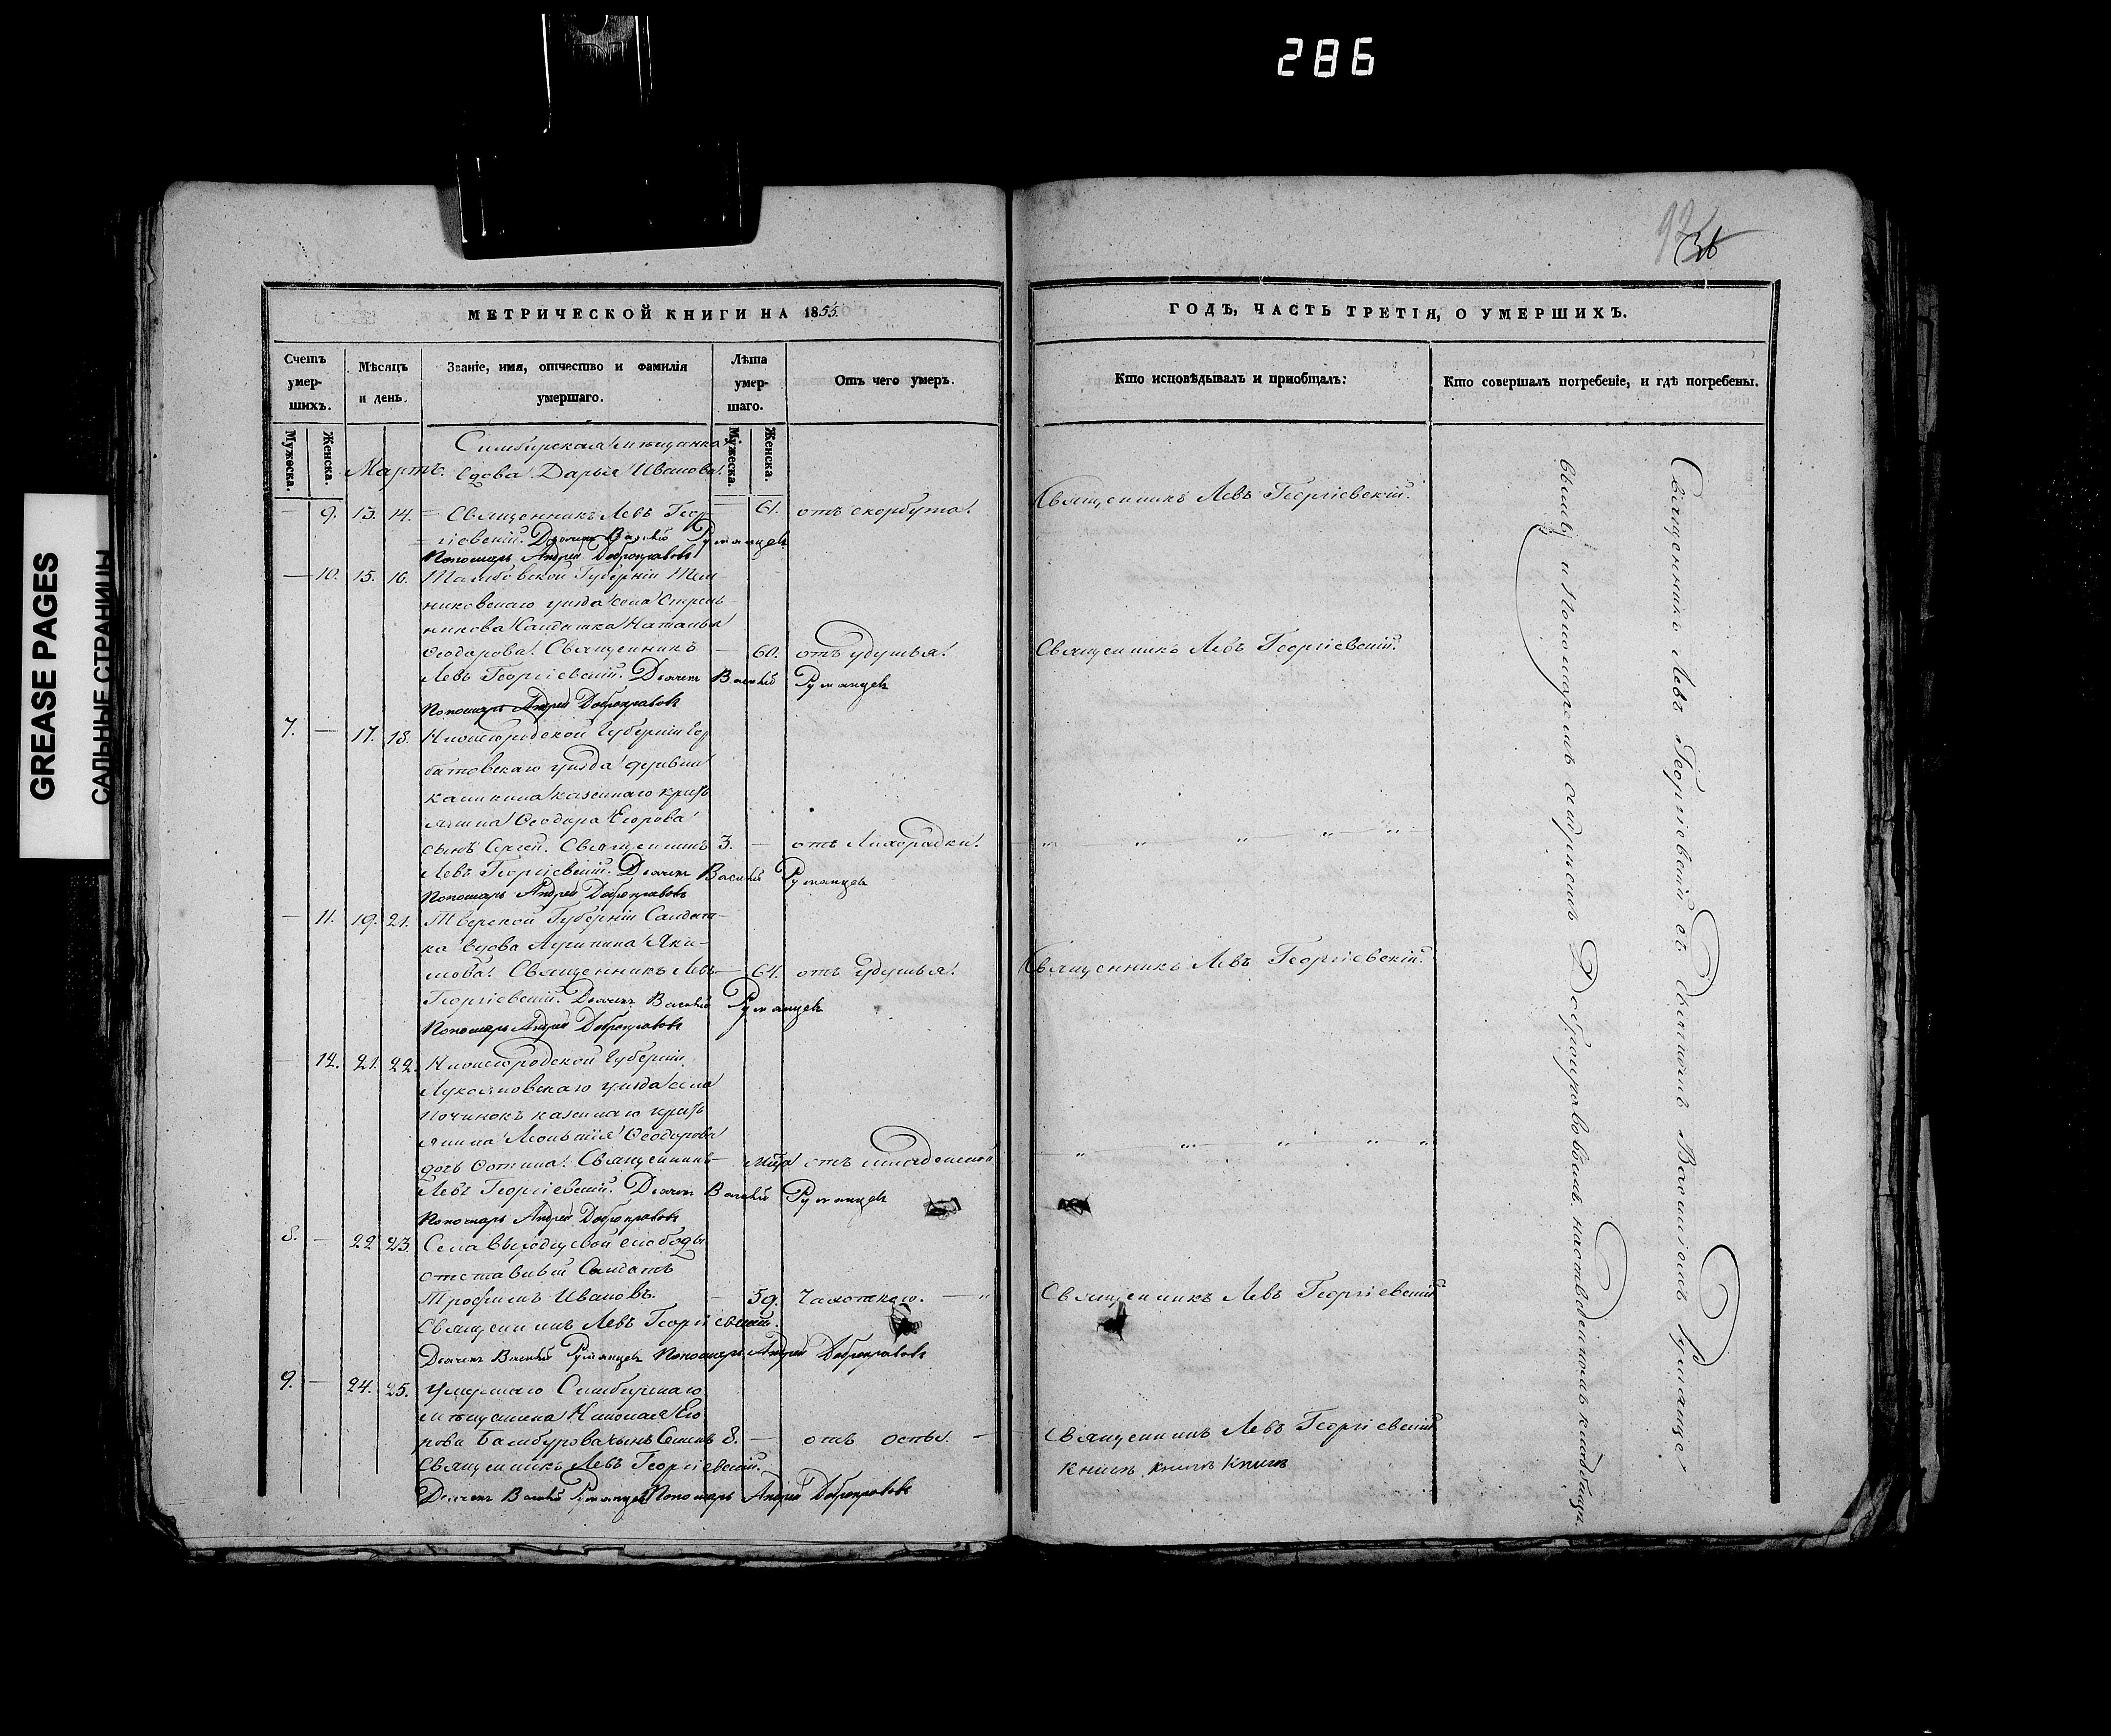 286
GREASE PAGES
САЛЬНЫЕ СТРАНИЦЫ
МЕТРИЧЕСКОЙ КНИГИ НА 1855.
Счетъ умер-шихъ.
Мужеска.
Женска.
Мѣсяцъ и день.
Званіе, имя, отчество и фамилія умершаго.
Лѣта умер-шаго.
Мужеска.
Женска.
Отъ чего умеръ.
Симбирская мѣщанка
Мартъ. вдова Дарья Иванова.
— 9. 13. 14. Священникъ Левъ Геор- — 61. отъ скорбута.
гіевскій. Дьячекъ Василій Румянцевъ
Пономарь Андрей Добронравовъ
— 10. 15. 16. Тамбовской Губерніи Тем
никовскаго уѣзда села Стрель
никова Салдатка Наталья
Ѳеодорова. Священникъ — 60. отъ удушья.
Левъ Георгіевскій. Дьячекъ Василій Румянцевъ
Пономарь Андрей Добронравовъ
7. — 17. 18. Нижегородской Губерніи Гор
батовскаго уѣзда деревни
казеннаго кресть
янина Ѳеодора Егорова
сынъ Сергей. Священникъ 3. — отъ лихорадки.
Левъ Георгіевскій. Дьячекъ Василій Румянцевъ
Пономарь Андрей Добронравовъ
— 11. 19. 21. Тверской Губерніи Салдат-
ка вдова Яки-
мова. Священникъ Левъ — 64. отъ удушья.
Георгіевскій. Дьячекъ Василій Румянцевъ
Пономарь Андрей Добронравовъ
— 12. 21. 22. Нижегородской Губерніи
Лукояновскаго уѣзда села
Починокъ казеннаго кресть
янина Леонтія Ѳеодорова
дочь Фотина. Священникъ отъ младенской
Левъ Георгіевскій. Дьячекъ Василій Румянцевъ
Пономарь Андрей Добронравовъ
8. — 22 23. Села слободы
отставный Салдатъ
Трофимъ Ивановъ. — 59. Чахоткою. — "
Священникъ Левъ Георгіевскій.
Дьячекъ Василій Румянцевъ Пономарь Андрей Добронравовъ
9. — 24. 25. Умершаго Симбирскаго
мѣщанина Николая Его
рова сынъ Семенъ 8. — отъ оспы. —
Священникъ Левъ Георгіевскій.
Дьячекъ Василій Румянцевъ Пономарь Андрей Добронравовъ
92
36
ГОДЪ, ЧАСТЬ ТРЕТІЯ, О УМЕРШИХЪ.
Кто исповѣдывалъ и пріобщалъ:
Кто совершалъ погребеніе, и гдѣ погребены.
Священникъ Левъ Георгіевскій.
Священникъ Левъ Георгіевскій.
Священникъ Левъ Георгіевскій.
Священникъ Левъ Георгіевскій
Священникъ Левъ Георгіевскій
Священникъ Левъ Георгіевскій съ Дьячкомъ Василіемъ Румянце
вымъ и Пономаремъ Андреемъ Добронравовымъ на отведенномъ кладбищѣ.